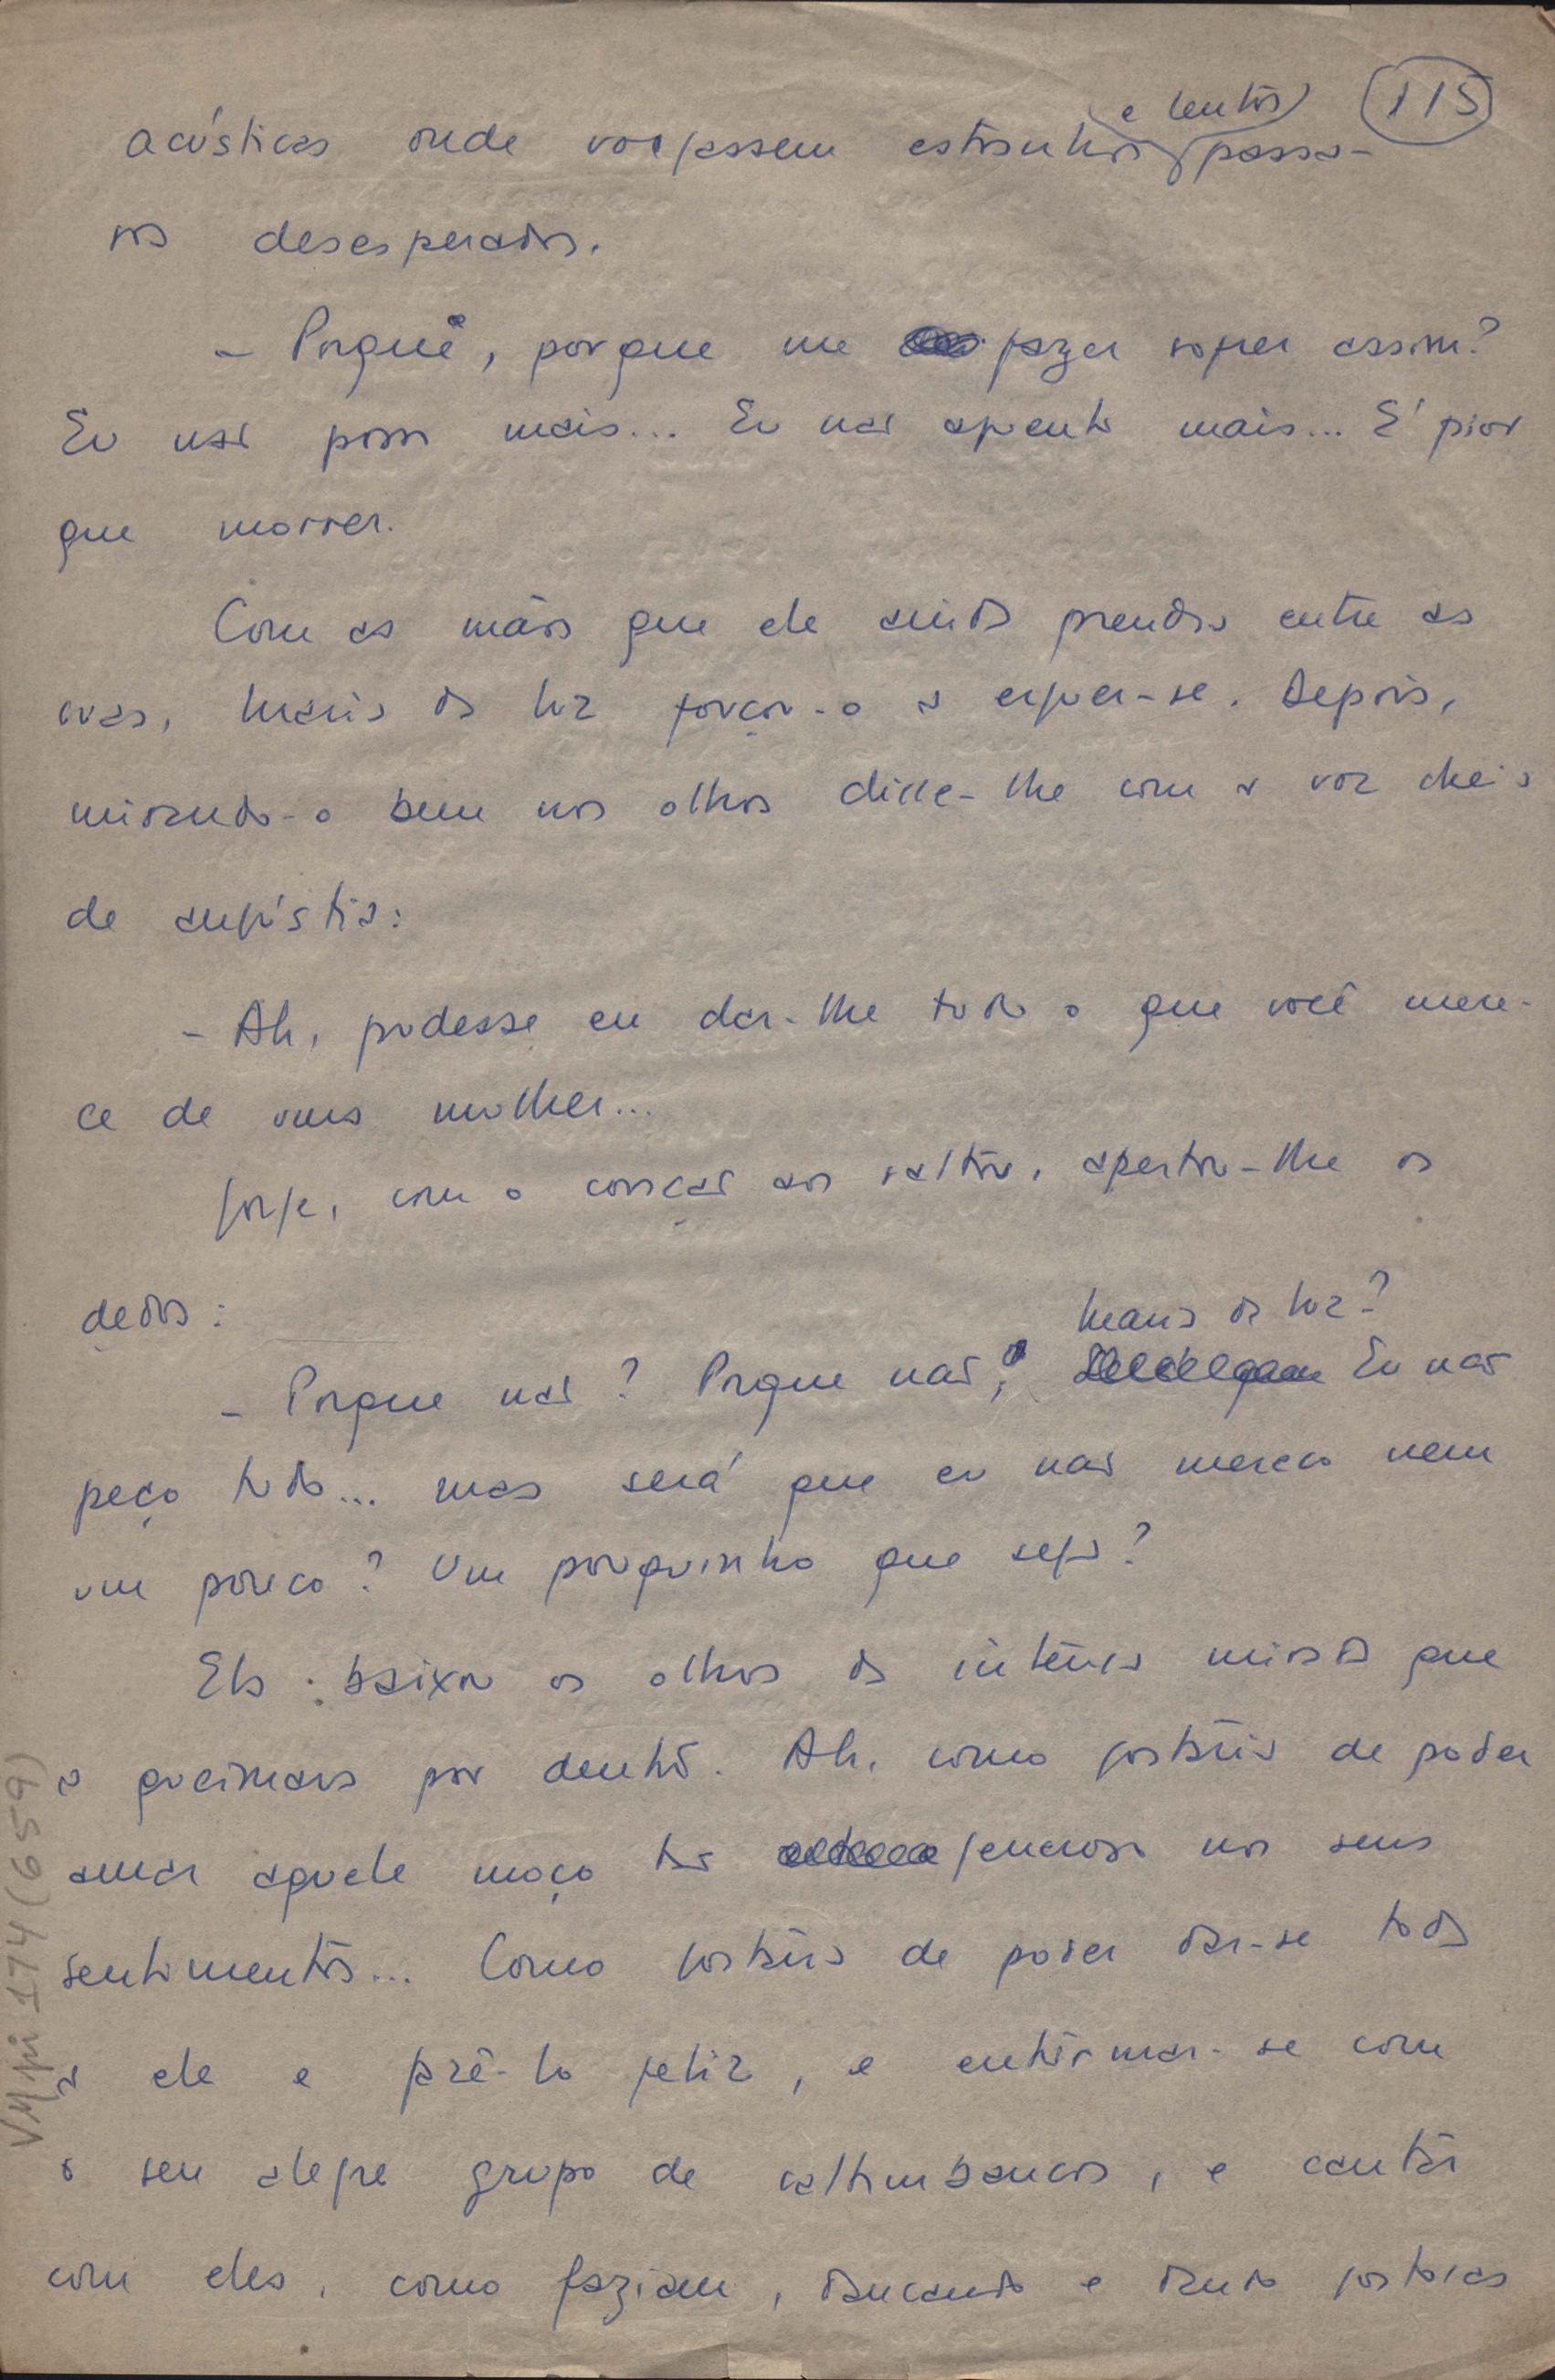 115
acústicas onde vogassem estranhos e lentos pássa-
ros desesperados.
- Porquê, porque me fazer sofrer assim?
Eu não posso mais... Eu não aguento mais... É pior
que morrer.
Com as mãos que ele ainda prendia entre as
suas, Maria da Luz forçou-o a erguer-se. Depois,
mirando-o bem nos olhos disse-lhe com a voz cheia
de angústia:
- Ah, pudesse eu dar-lhe tudo o que você mere-
ce de uma mulher...
Jorge, com o coração aos saltos, apertou-lhe os
dedos:
- Porque não? Porque não, Maria da Luz? Eu não
peço tudo... mas será que eu não mereço nem
um pouco? Um pouquinho que seja?
Ela baixou os olhos da intensa mirada que
a queimava por dentro. Ah, como gostaria de poder
amar aquele moço tão generoso nos seus
sentimentos... Como gostaria de poder dar-se toda
a ele e fazê-lo feliz, e entrosar-se com
o seu alegre grupo de saltimbancos, e cantar
com eles, como faziam, dançando e dando gostosas
VMpi 174 (659)